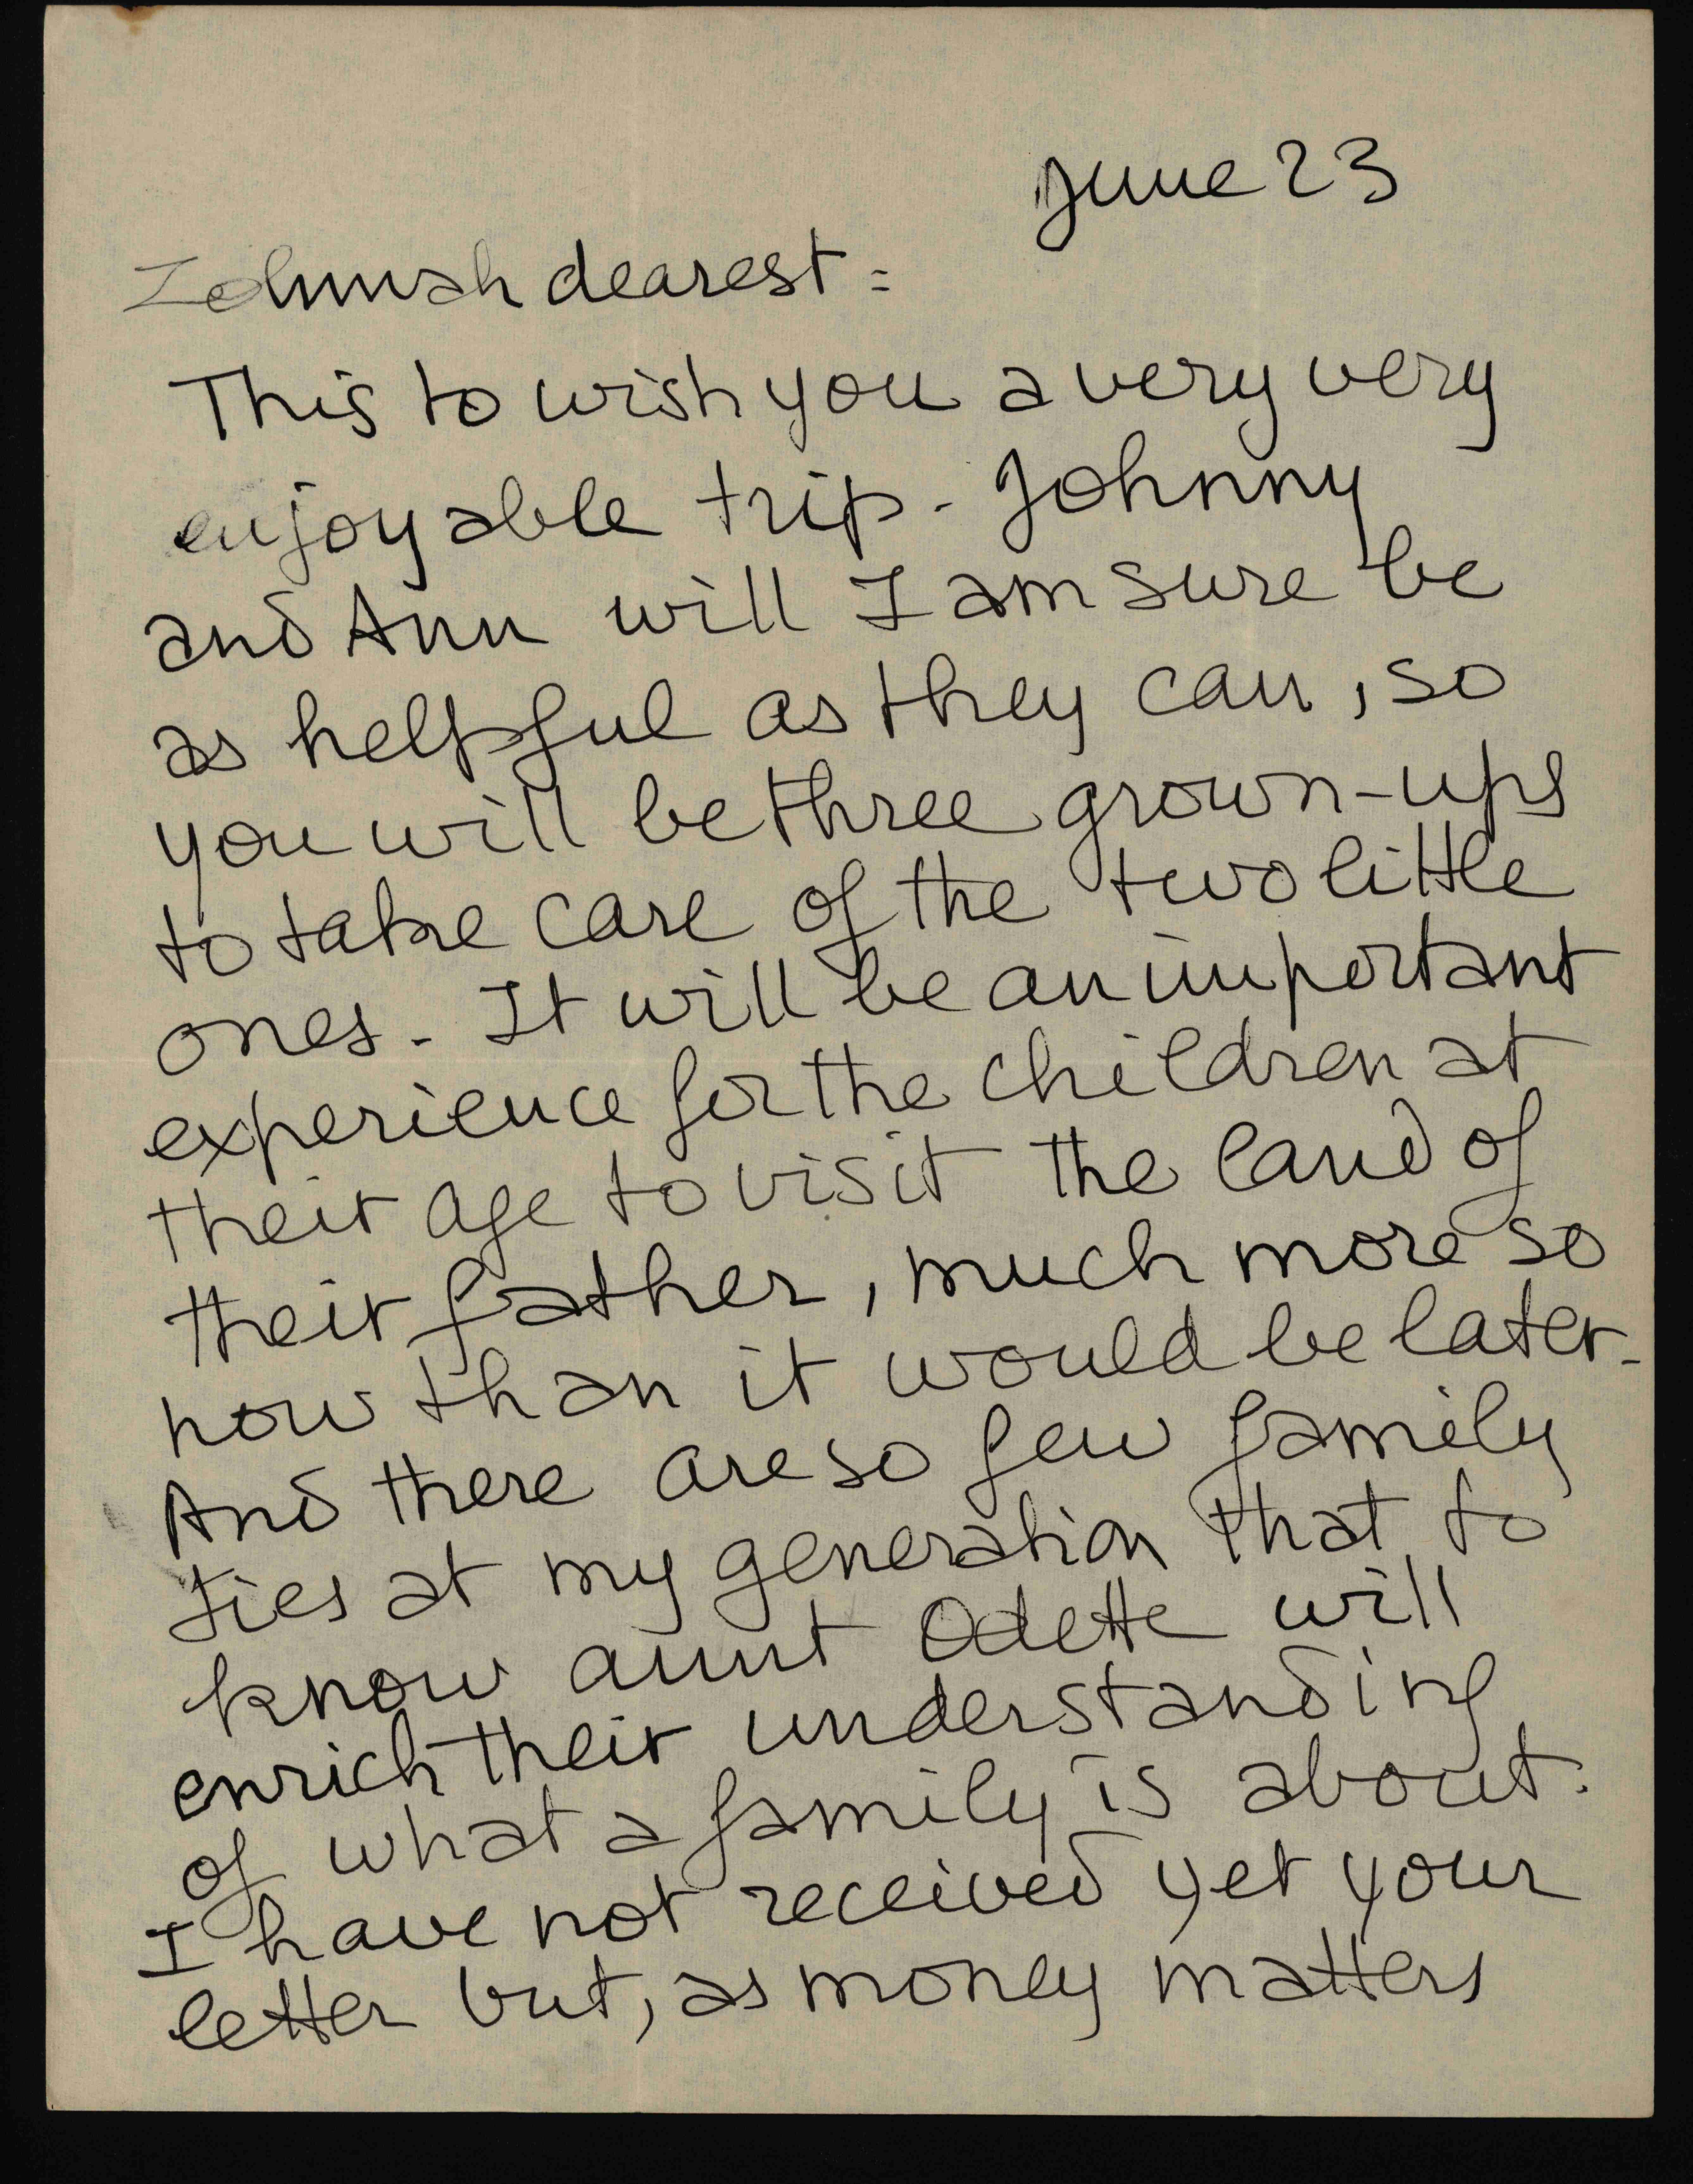 June 23
Zohmah dearest =
This to wish you a very very
enjoyable trip - Johnny
and Ann will I am sure be
as helpful as they can, so
you will be three grown-ups
to take care of the two little
ones - It will be an important
experience for the children at
their age to visit the land of
their father, much more so
now than it would be later -
And there are so few family
ties at my generation that to
know aunt Odette will
enrich their understanding
of what a family is about.
I have not received yet your
letter but, as money matters